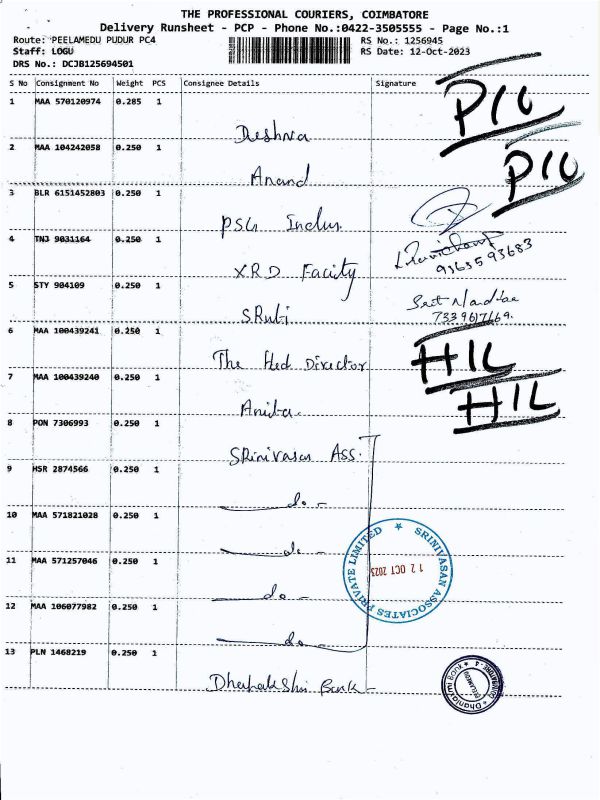 THE PROFESSIONAL COURIERS, COIMBATORE
Delivery Runsheet - PCP - Phone No.:0422-3505555 - Page No.:1
Route: PEELAMEDU PUDUR PC4 RS No.: 1256945
Staff: LOGU RS Date: 12-Oct-2023
DRS No.: DCJB125694501
S No Consignment No Weight PCS Consignee Details Signature
1 MAA 570120974 0.285 1
Deshna PIU
2 MAA 104242058 0.250 1
Anand PIU
3 BLR 6151452803 0.250 1
PSG Indus.
4 TNJ 9031164 0.250 1
XRD Facity 9363593683
5 STY 904109 0.250 1
SRuti 7339617669.
6 MAA 100439241 0.250 1
The Hed Director HIL
7 MAA 100439240 0.250 1
Anita. HIL
8 PON 7306993 0.250 1
SRinivasan Ass.
9 HSR 2874566 0.250 1
do -
10 MAA 571821028 0.250 1
do -
11 MAA 571257046 0.250 1
do -
12 MAA 106077982 0.250 1
do -
SRINIVASAN ASSOCIATES PRIVATE LIMITED
12 OCT 2023
13 PLN 1468219 0.250 1
Bank -
Dhanlaxmi Bank
PEELAMEDU
COIMBATORE - 4